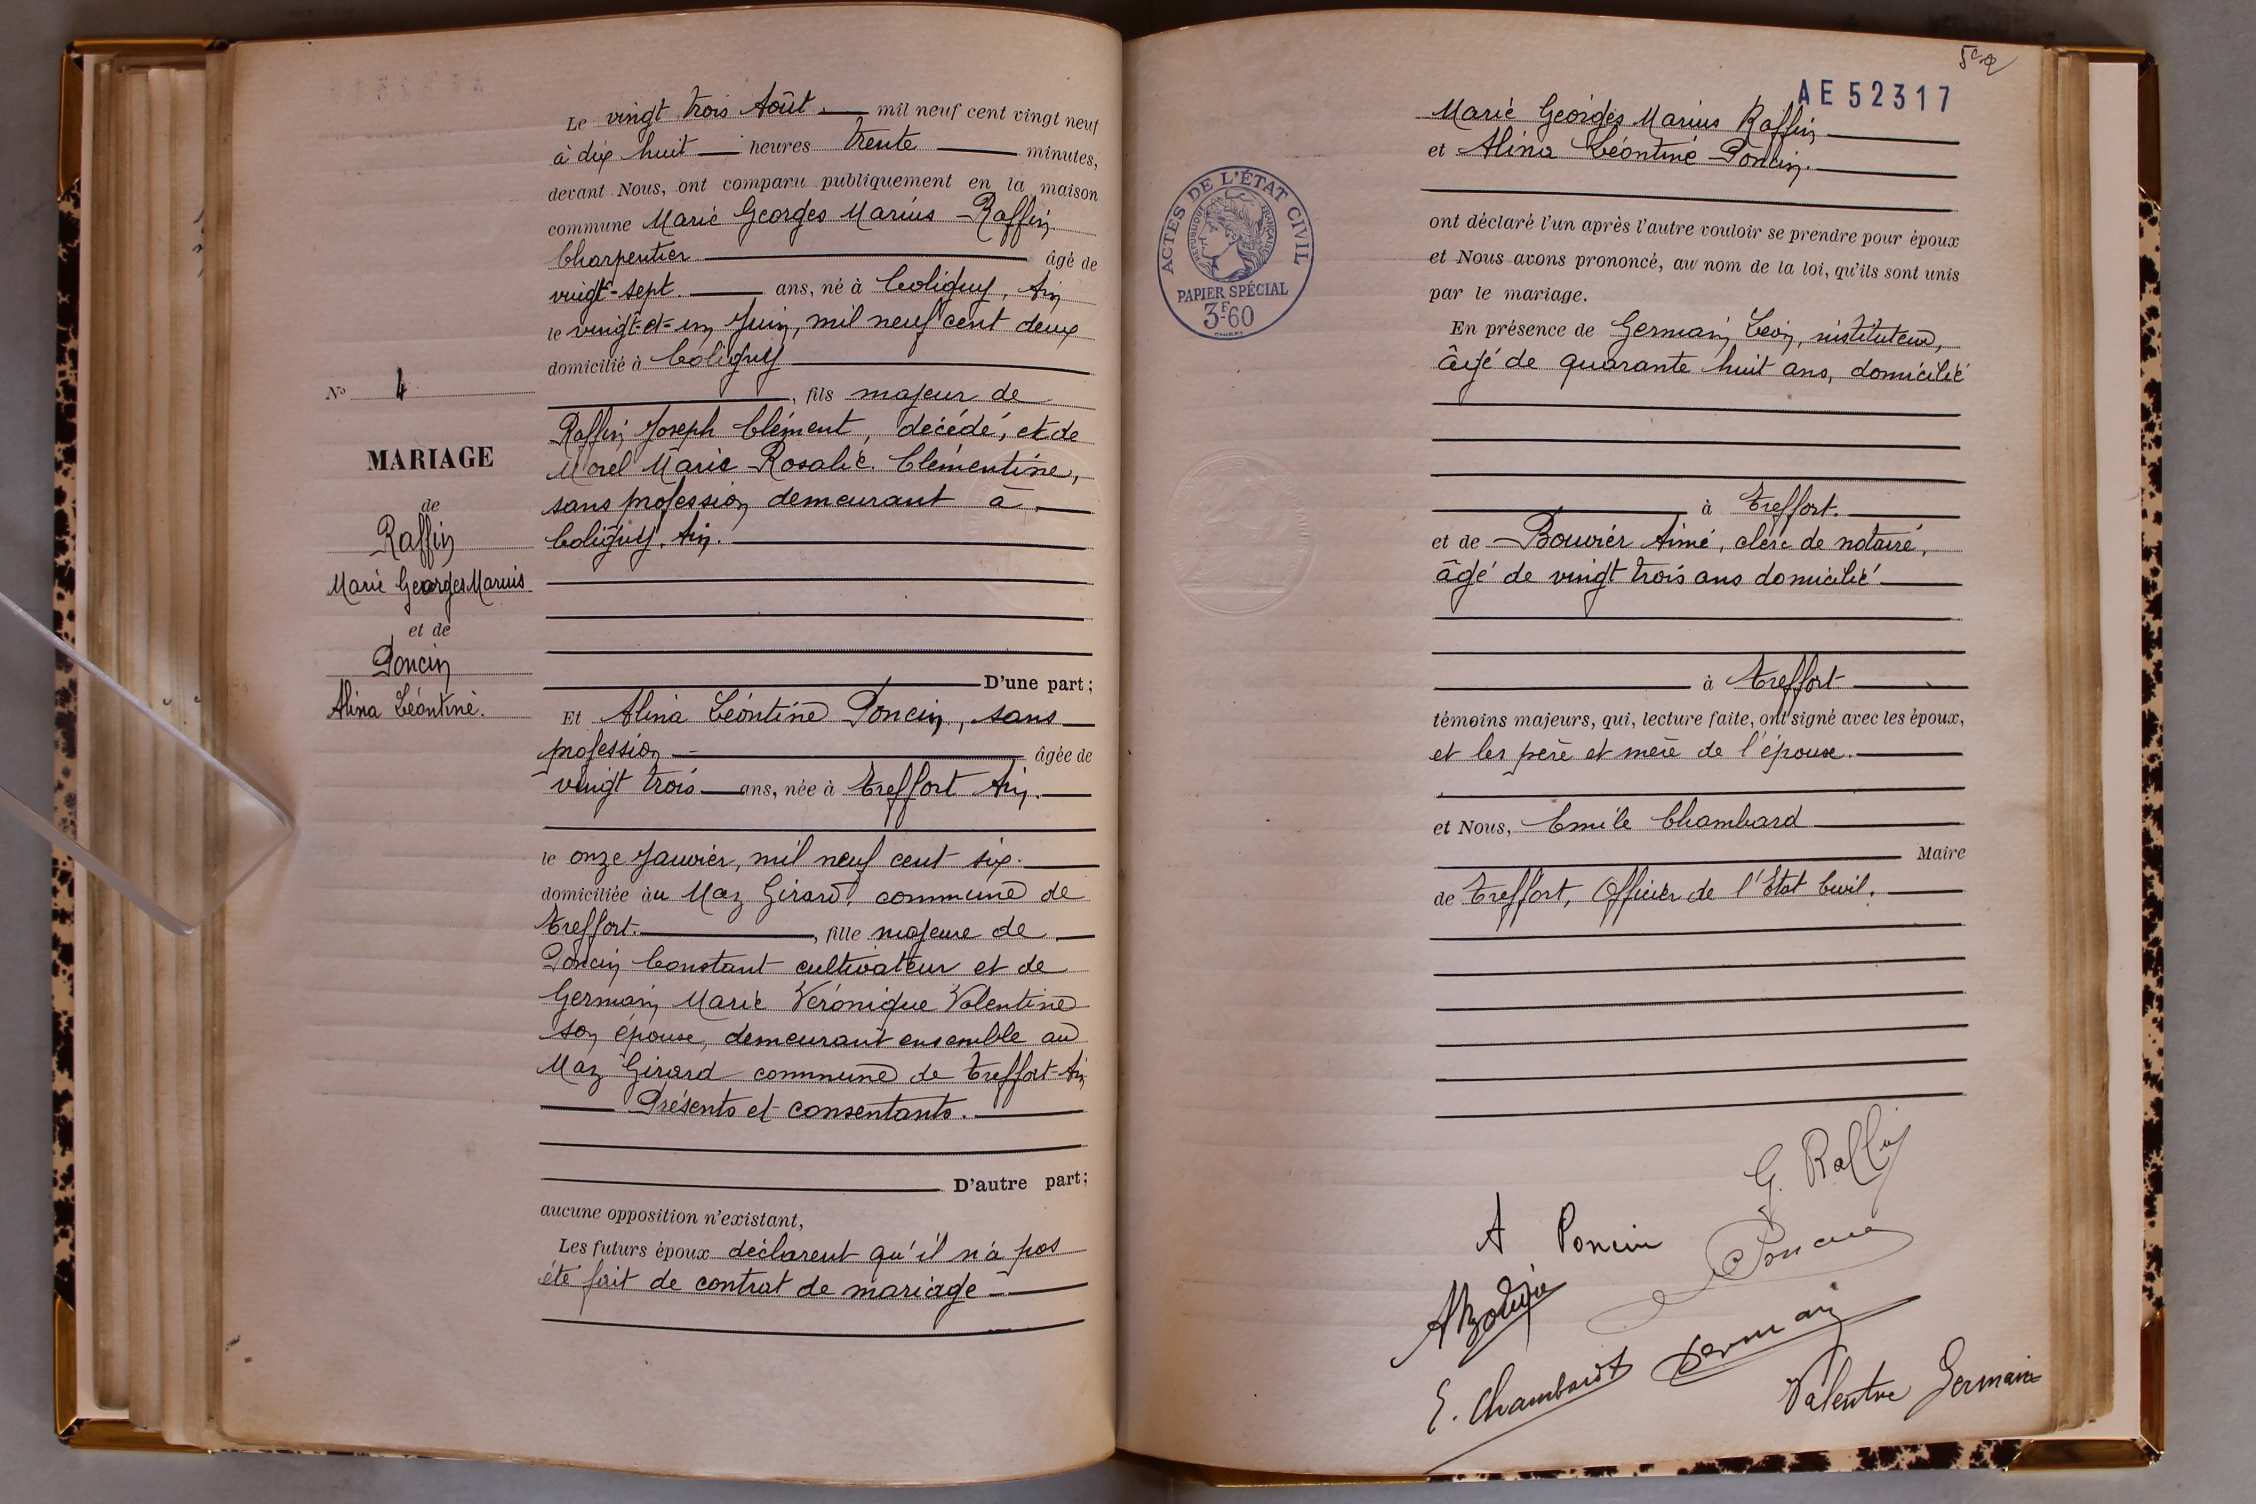 Le vingt trois Août mil neuf cent vingt neuf
à dix huit heures trente minutes,
devant Nous, ont comparu publiquement en la maison
commune Marie Georges Marius Raffin
Charpentier âgé de
vingt-sept ans, né à Coligny, Ain
le vingt-et-un Juin, mil neuf cent deux
domicilié à Coligny
, fils majeur de
Raffin Joseph Clément, décédé, et de
Morel Marie Rosalie Clémentine,
sans profession demeurant à
Coligny. Ain.
D'une part;
Et Alina Léontine Poncin, sans
profession âgée de
vingt trois ans, née à Treffort Ain.
le onze Janvier, mil neuf cent six.
domiciliée àu Maz Girard, commune de
Treffort. , fille majeure de
Poncin Constant cultivateur et de
Germain Marie Véronique Valentine
son épouse, demeurant ensemble au
Maz Girard commune de Treffort-Ain
Présents et consentants.
D'autre part;
aucune opposition n'existant,
Les futurs époux déclarent qu'il n'a pas
été fait de contrat de mariage
No 4
MARIAGE
de
Raffin
Marie Georges Marius
et de
Poncin
Alina Léontine.
AE 52317
Marie Georges Marius Raffin
et Alina Léontine Poncin.
ont déclaré l'un après l'autre vouloir se prendre pour époux
et Nous avons prononcé, au nom de la loi, qu'ils sont unis
par le mariage.
En présence de Germain Léon, instituteur,
âgé de quarante huit ans, domicilié
à Treffort.
et de Bouvier Aimé, clerc de notaire,
âgé de vingt trois ans domicilié
à Treffort
témoins majeurs, qui, lecture faite, ont signé avec les époux,
et les père et mère de l'épouse.
et Nous, Emile Chambard
Maire
de Treffort, Officier de l'Etat Civil.
ACTES DE L'ÉTAT CIVIL
RÉPUBLIQUE FRANÇAISE
PAPIER SPÉCIAL
3F60
G. Raffin
A Poncin
Poncin
A Bouvier
Germain
E. Chambard
Valentine Germain